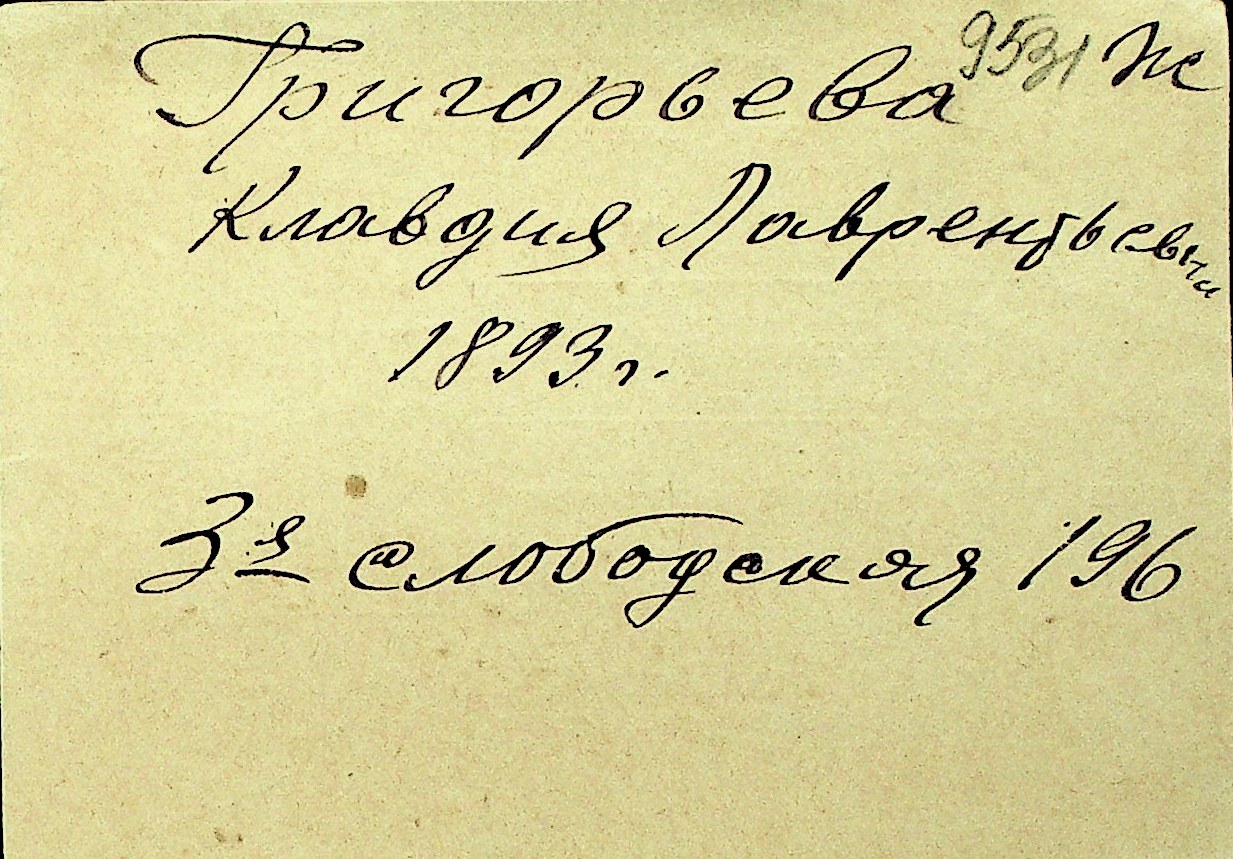 Григорьева 9531 Ж
Клавдия Лаврентьевн
1893 г.
3я слободская 196